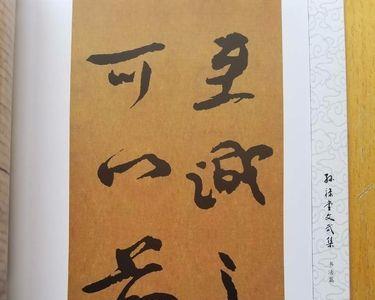 至诚之
可以前
文武集
书法篇